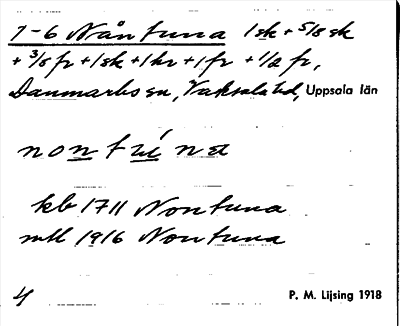 1-6 Nåntuna 1 sk + 5/8 sk
+ 3/8 fr + 1 sk + 1 kr + 1 fr + 1/2 fr,
Danmarks sn, Vaksala hd, Uppsala län
kb 1711 Nontuna
mtl 1916 Nontuna
4 P. M. Lijsing 1918